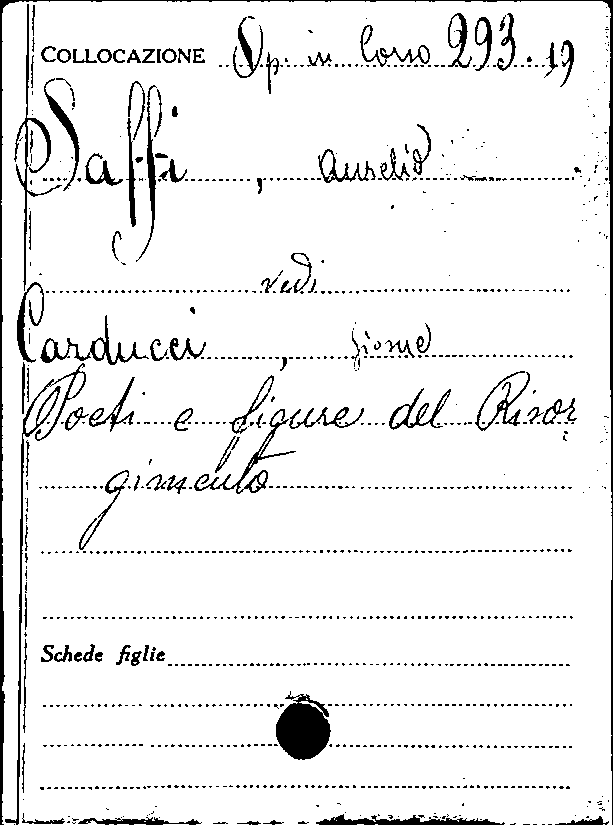 COLLOCAZIONE Op. in Corso 293.19
Saffi, Aurelio
vedi
Carducci, Giosue
Poeti e figure del Risor
gimento
Schede figlie